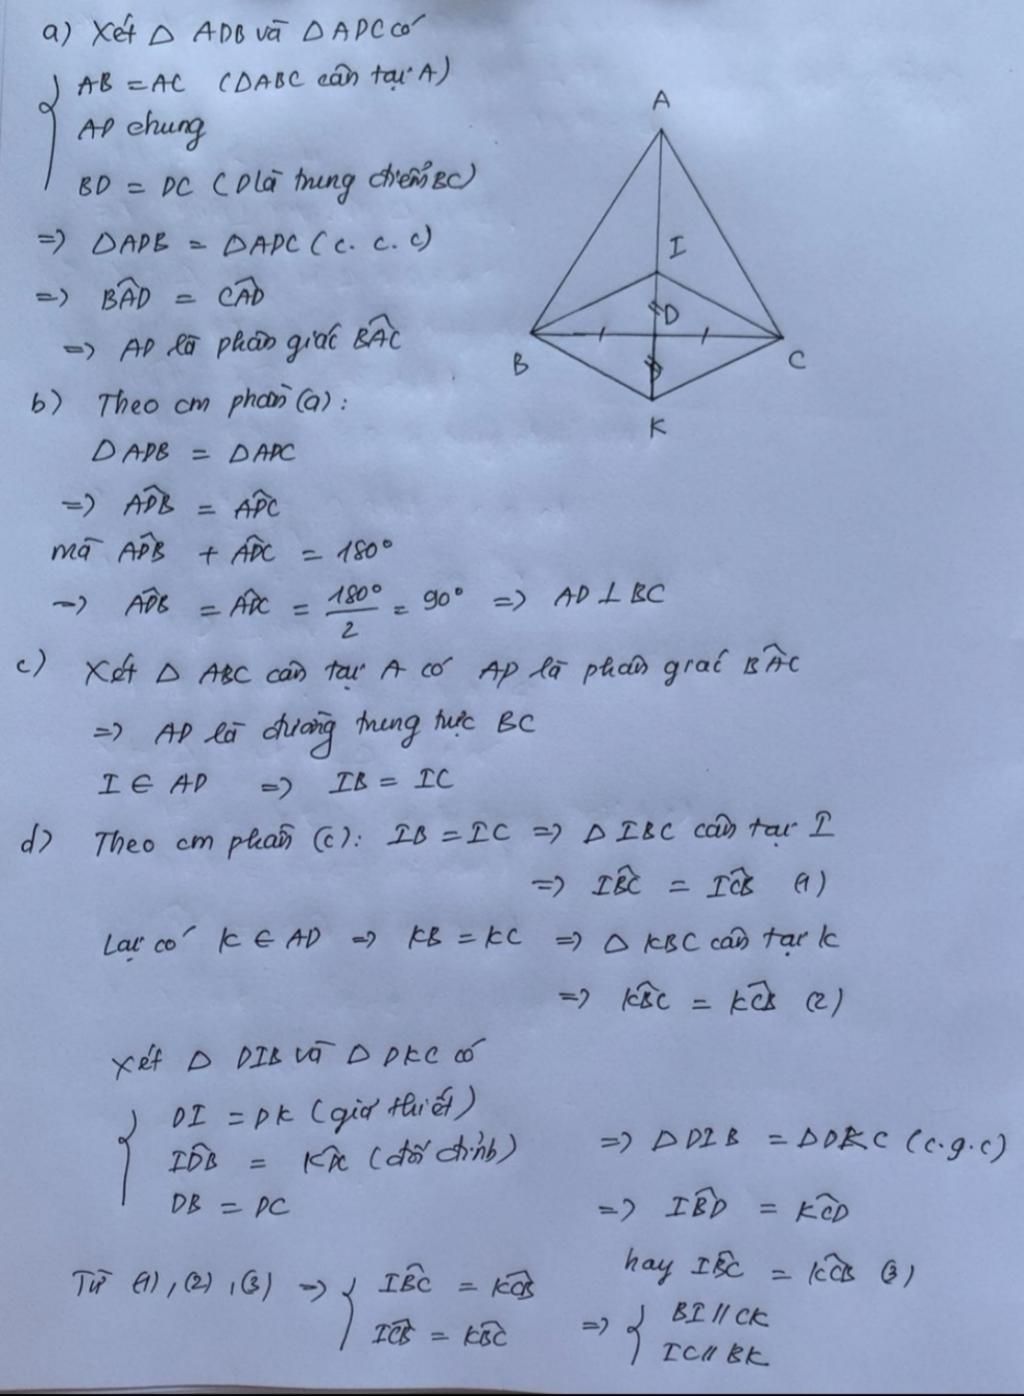 a) Xét △ ADB và △ ADC có
AB = AC (△ABC cân tại A)
AD chung
BD = DC (D là trung điểm BC)
=> △ADB = △ADC (c.c.c)
=> BÂD = CÂD
=> AD là phân giác BÂC
A
I
D
B
C
K
b) Theo cm phần (a):
△ADB = △ADC
=> ADB̂ = ADĈ
mà ADB̂ + ADĈ = 180°
=> ADB̂ = ADĈ = 180°/2 = 90° => AD ⊥ BC
c) Xét △ ABC cân tại A có AD là phân giác BÂC
=> AD là đường trung trực BC
I ∈ AD => IB = IC
d) Theo cm phần (c): IB = IC => △ IBC cân tại I
=> IB̂C = IĈB (1)
Lại có K ∈ AD => KB = KC => △ KBC cân tại K
=> KB̂C = KĈB (2)
Xét △ DIB và △ DKC có
DI = DK (giả thiết)
ID̂B = KD̂C (đối đỉnh)
DB = DC
=> △DIB = △DKC (c.g.c)
=> IB̂D = KĈD
hay IB̂C = KĈB (3)
Từ (1), (2), (3) => IB̂C = KĈB
IĈB = KB̂C
=> BI // CK
IC // BK